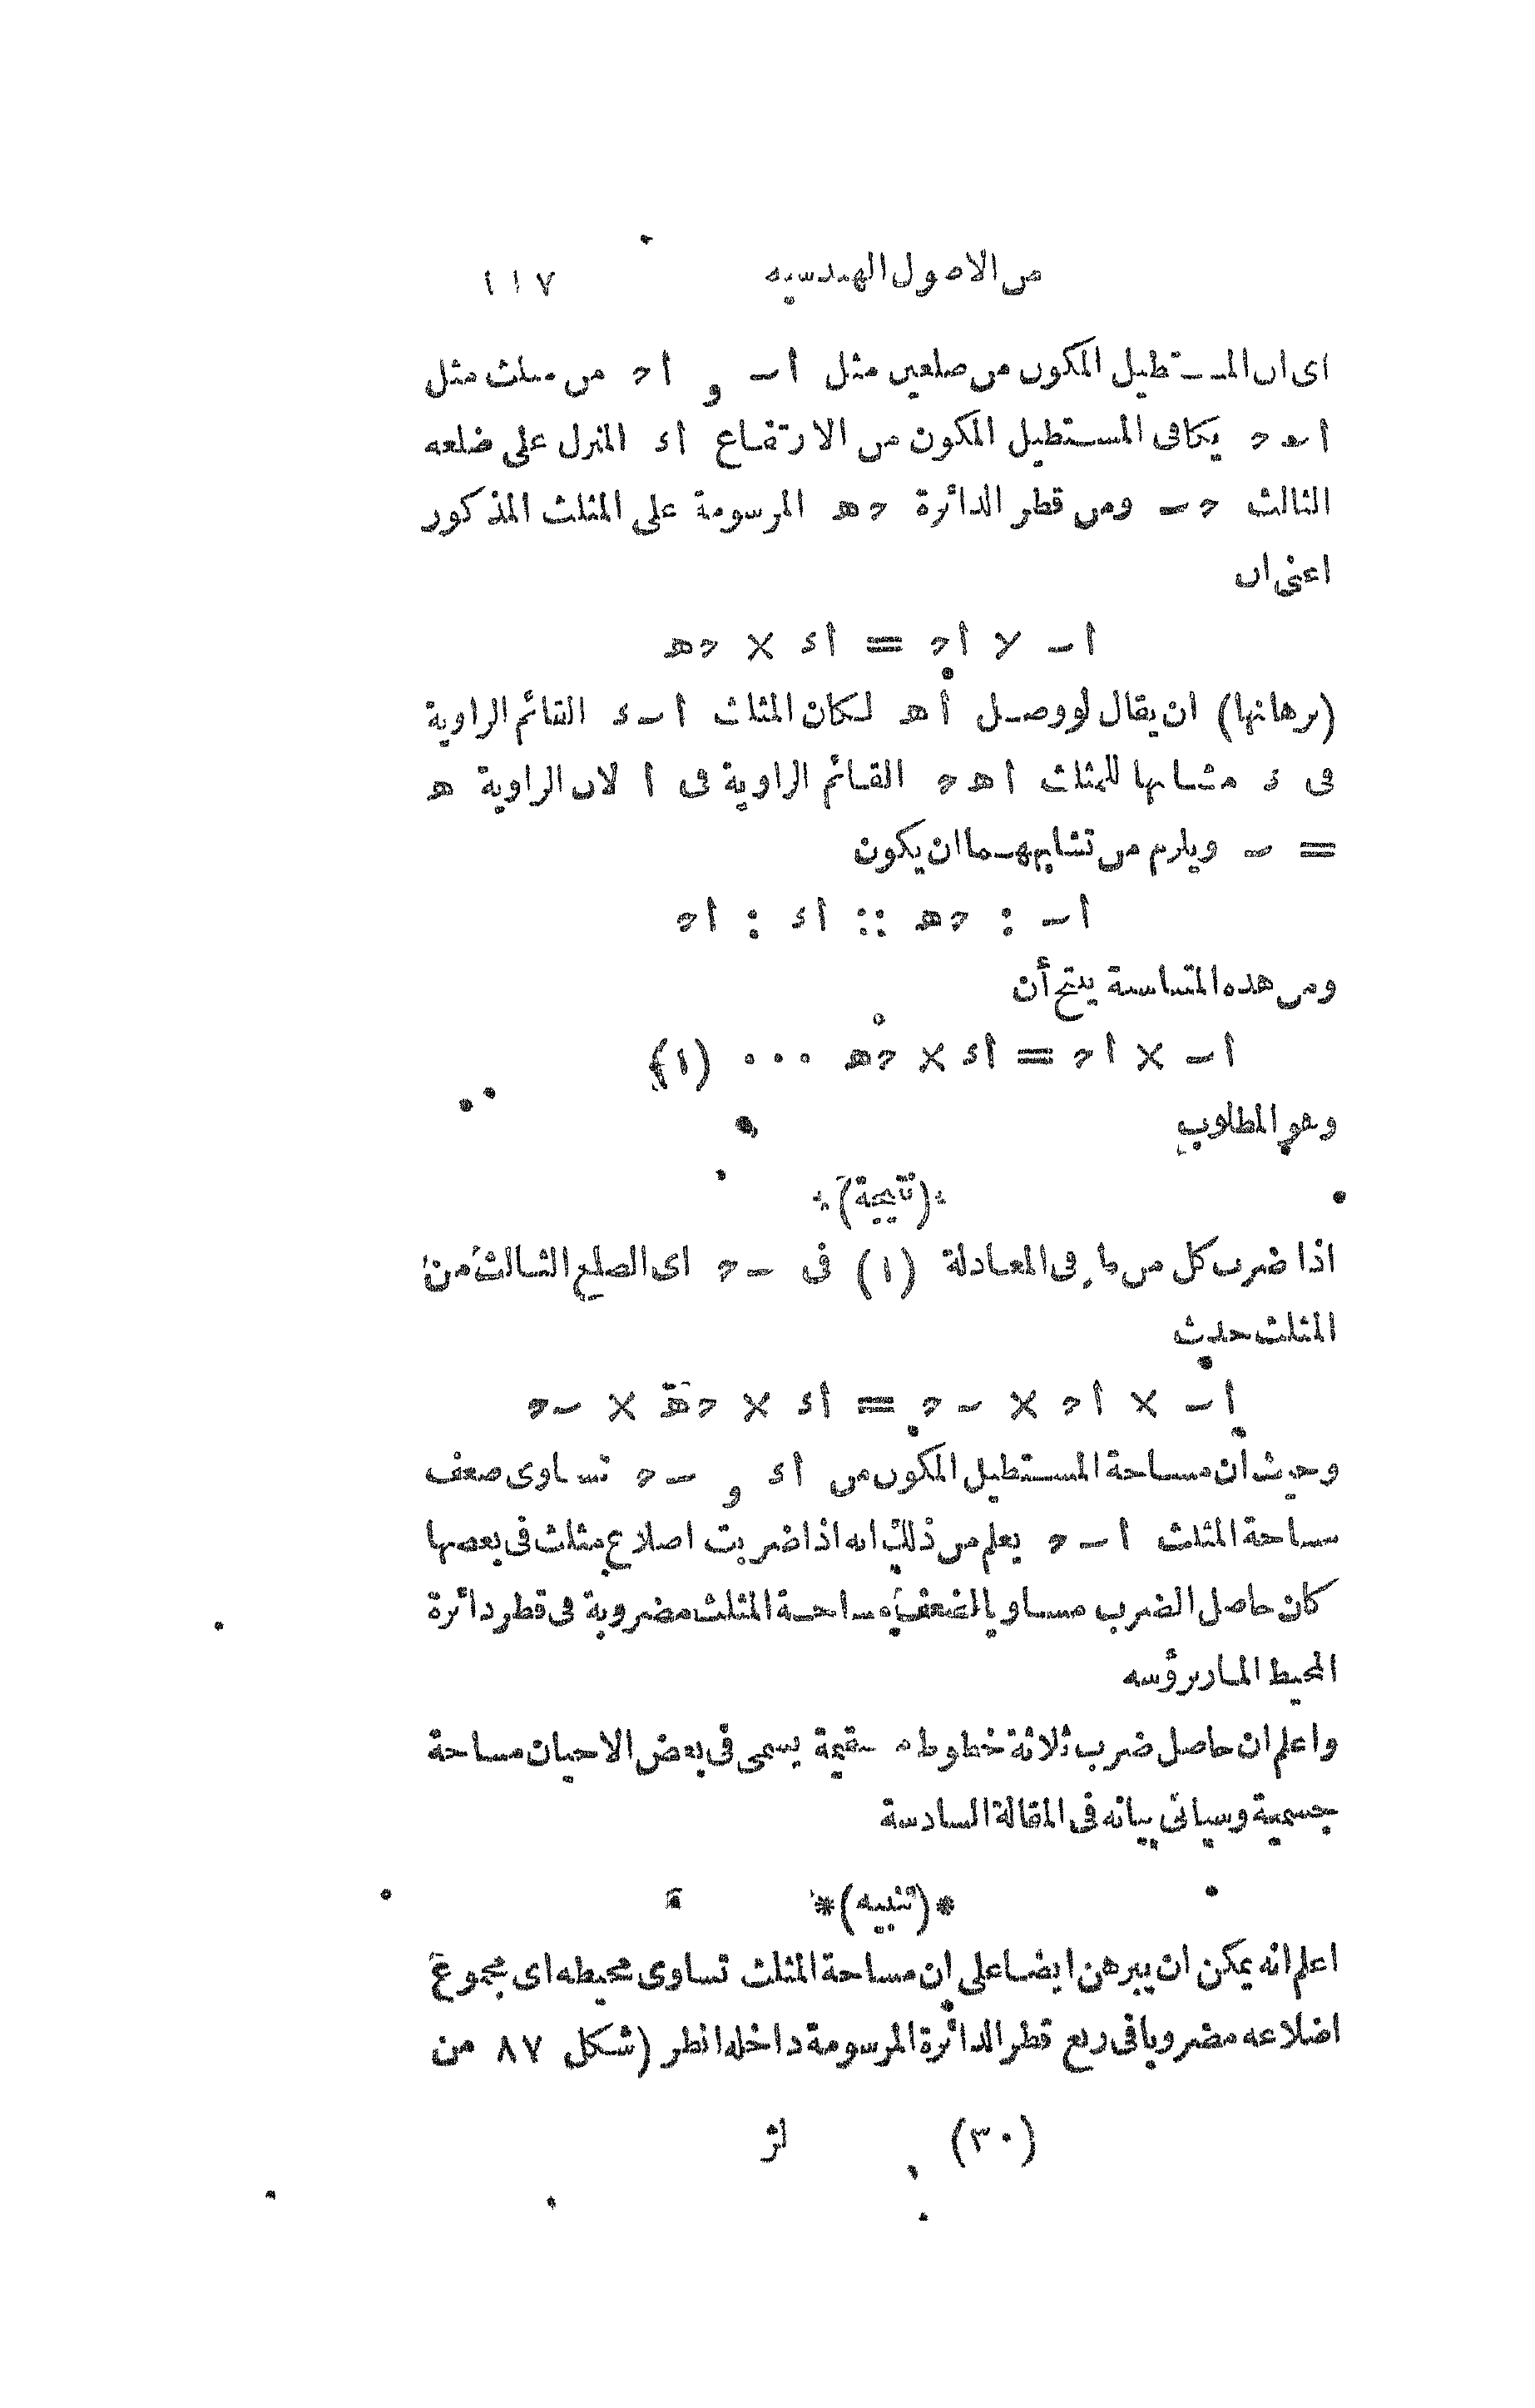 من الاصول الهندسيه ١١٧
اى ان المستطيل المكون من ضلعين مثل أب و أح من مثلث مثل
أبح يكافى المستطيل المكون من الارتفاع أء المنزل على ضلعه
الثالث حب ومن قطر الدائرة حه المرسومة على المثلث المذكور
اعنى ان
أب × أح = أء × حه
(برهانها) ان يقال لو وصل أه لكان المثلث أبء القائم الزاوية
فى ء مشابها للمثلث أهح القائم الزاوية فى أ لان الزاوية ه
= ب ويلزم من تشابههما ان يكون
أب : حه :: أء : أح
ومن هذه المتناسبة ينتج أن
أب × أح = أء × حه ··· (١)
وهو المطلوب
(نتيجة)
اذا ضرب كل من طرفى المعادلة (١) فى بح اى الضلع الثالث من
المثلث حدث
أب × أح × بح = أء × حه × بح
وحيث ان مساحة المستطيل المكون من أء و بح تساوى ضعف
مساحة المثلث أبح يعلم من ذلك انه اذا ضربت اضلاع مثلث فى بعضها
كان حاصل الضرب مساويا لضعف مساحة المثلث مضروبة فى قطر دائرة
المحيط المار برؤسه
واعلم ان حاصل ضرب ثلاثة خطوط مستقيمة يسمى فى بعض الاحيان مساحة
جسمية وسياتى بيانه فى المقالة السادسة
*(تنبيه)*
اعلم انه يمكن ان يبرهن ايضا على ان مساحة المثلث تساوى محيطه اى مجموع
اضلاعه مضروبا فى ربع قطر الدائرة المرسومة داخله انظر (شكل ٨٧ من
(٣٠) لز